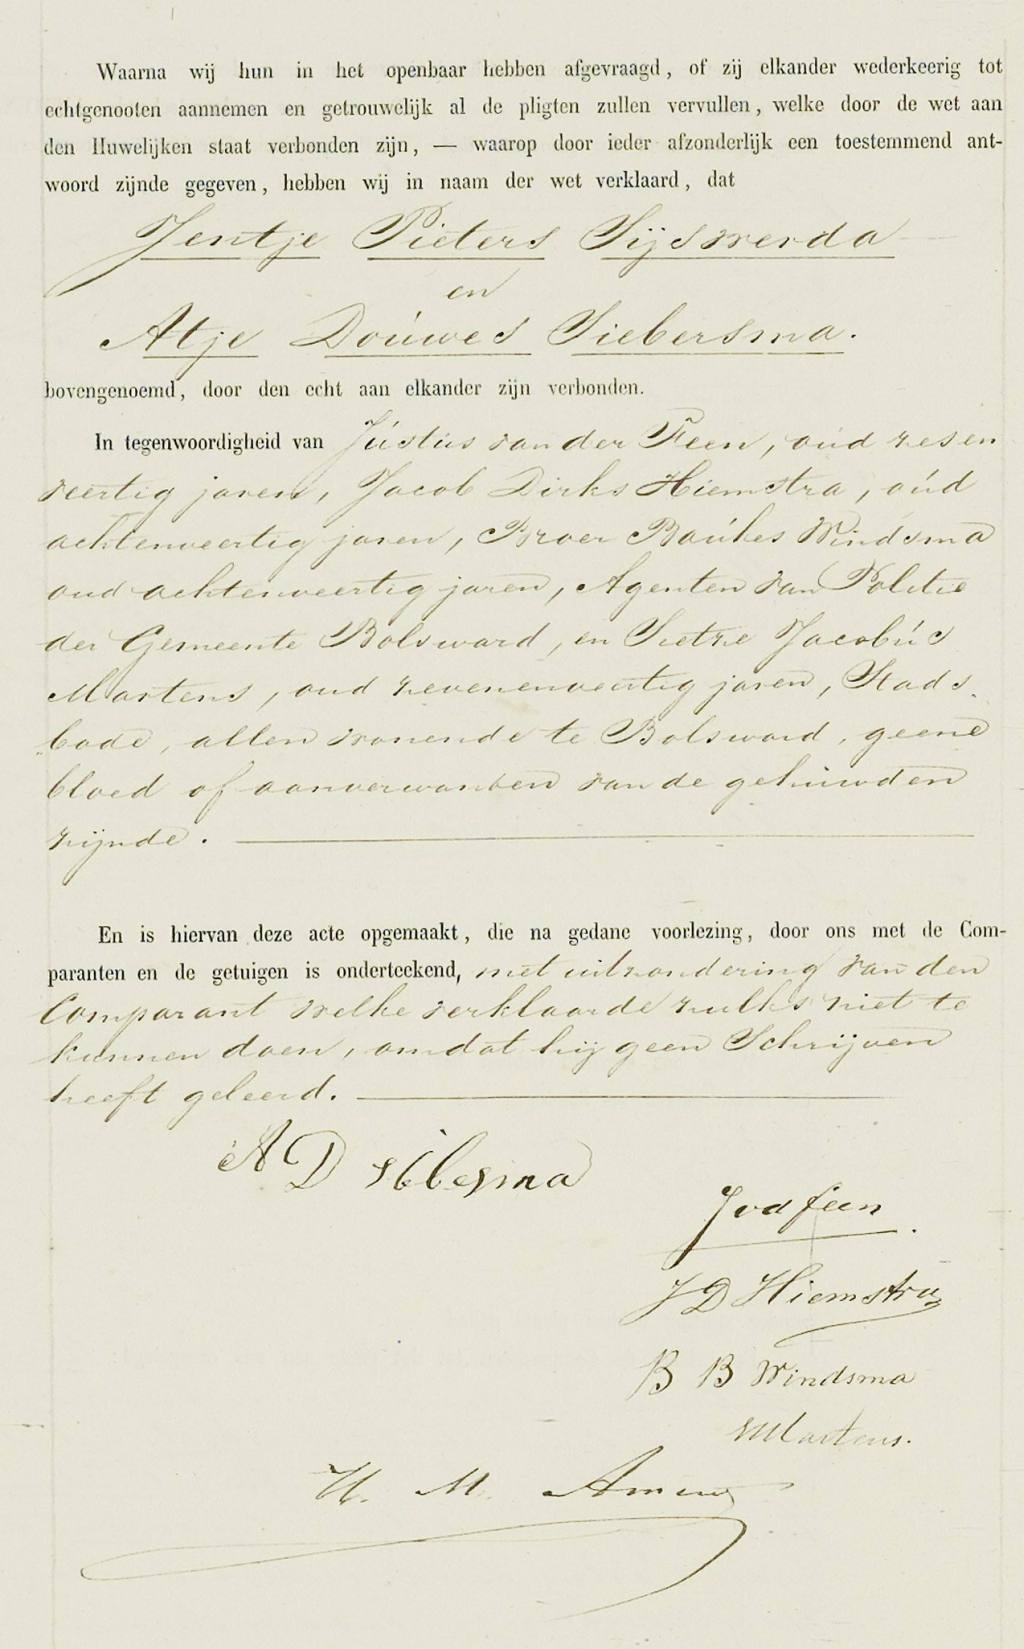 Waarna wij hun in het openbaar hebben afgevraagd, of zij elkander wederkeerig tot
echtgenooten aannemen en getrouwelijk al de pligten zullen vervullen, welke door de wet aan
den Huwelijken staat verbonden zijn, — waarop door ieder afzonderlijk een toestemmend ant-
woord zijnde gegeven, hebben wij in naam der wet verklaard, dat
Jentje Pieters Sijswerda
en
Atje Doúwes Siebersma.
bovengenoemd, door den echt aan elkander zijn verbonden.
In tegenwoordigheid van Jústús van der Feen, oúd zes en
veertig jaren, Jacob Dirks Hiemstra, oúd
achtenveertig jaren, Broer Baúkes Windsma
oud achtenveertig jaren, Agenten van Politie
der Gemeente Bolsward, en Sietze Jacobús
Martens, oud zevenenveertig jaren, Stads-
bode, allen wonende te Bolsward, geene
bloed of aanverwanten van de gehuwden
zijnde.
En is hiervan deze acte opgemaakt, die na gedane voorlezing, door ons met de Com-
paranten en de getuigen is onderteekend, met uitzondering van den
Comparant welke verklaarde zulks niet te
kunnen doen, omdat hij geen Schrijven
heeft geleerd.
A D
JvdFeen
J D Hiemstra
B B Windsma
Martens.
H. M.